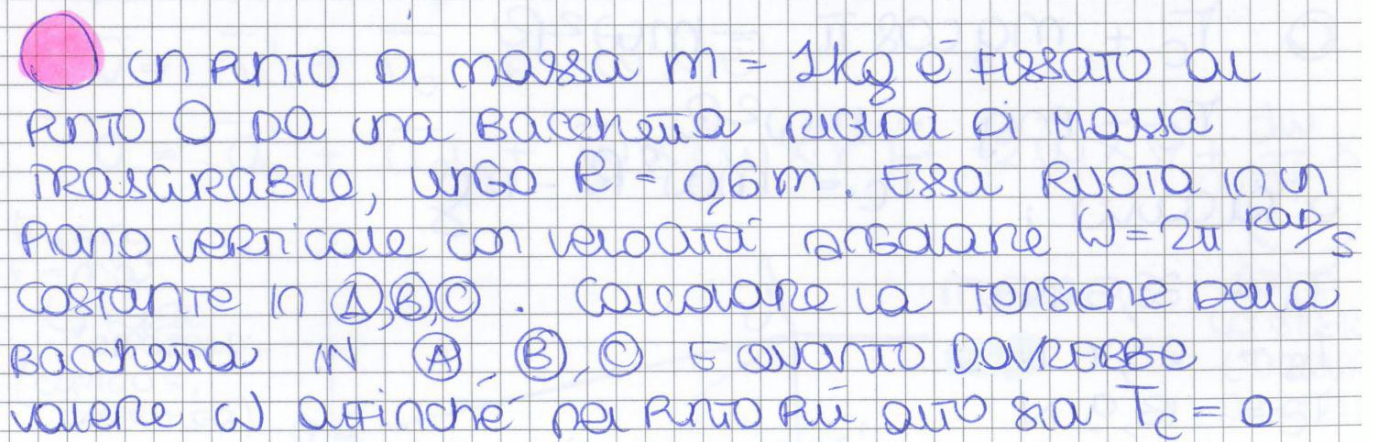 UN PUNTO DI MASSA m = 1kg è FISSATO AL
PUNTO O DA UNA BACCHETTA RIGIDA DI MASSA
TRASCURABILE, LUNGO R = 0,6m. ESSA RUOTA IN UN
PIANO VERTICALE CON VELOCITÀ ANGOLARE ω = 2π RAD/S
COSTANTE IN A, B, C. CALCOLARE LA TENSIONE DELLA
BACCHETTA IN A, B, C E QUANTO DOVREBBE
VALERE ω AFFINCHÉ NEL PUNTO PIÙ ALTO SIA Tc = 0